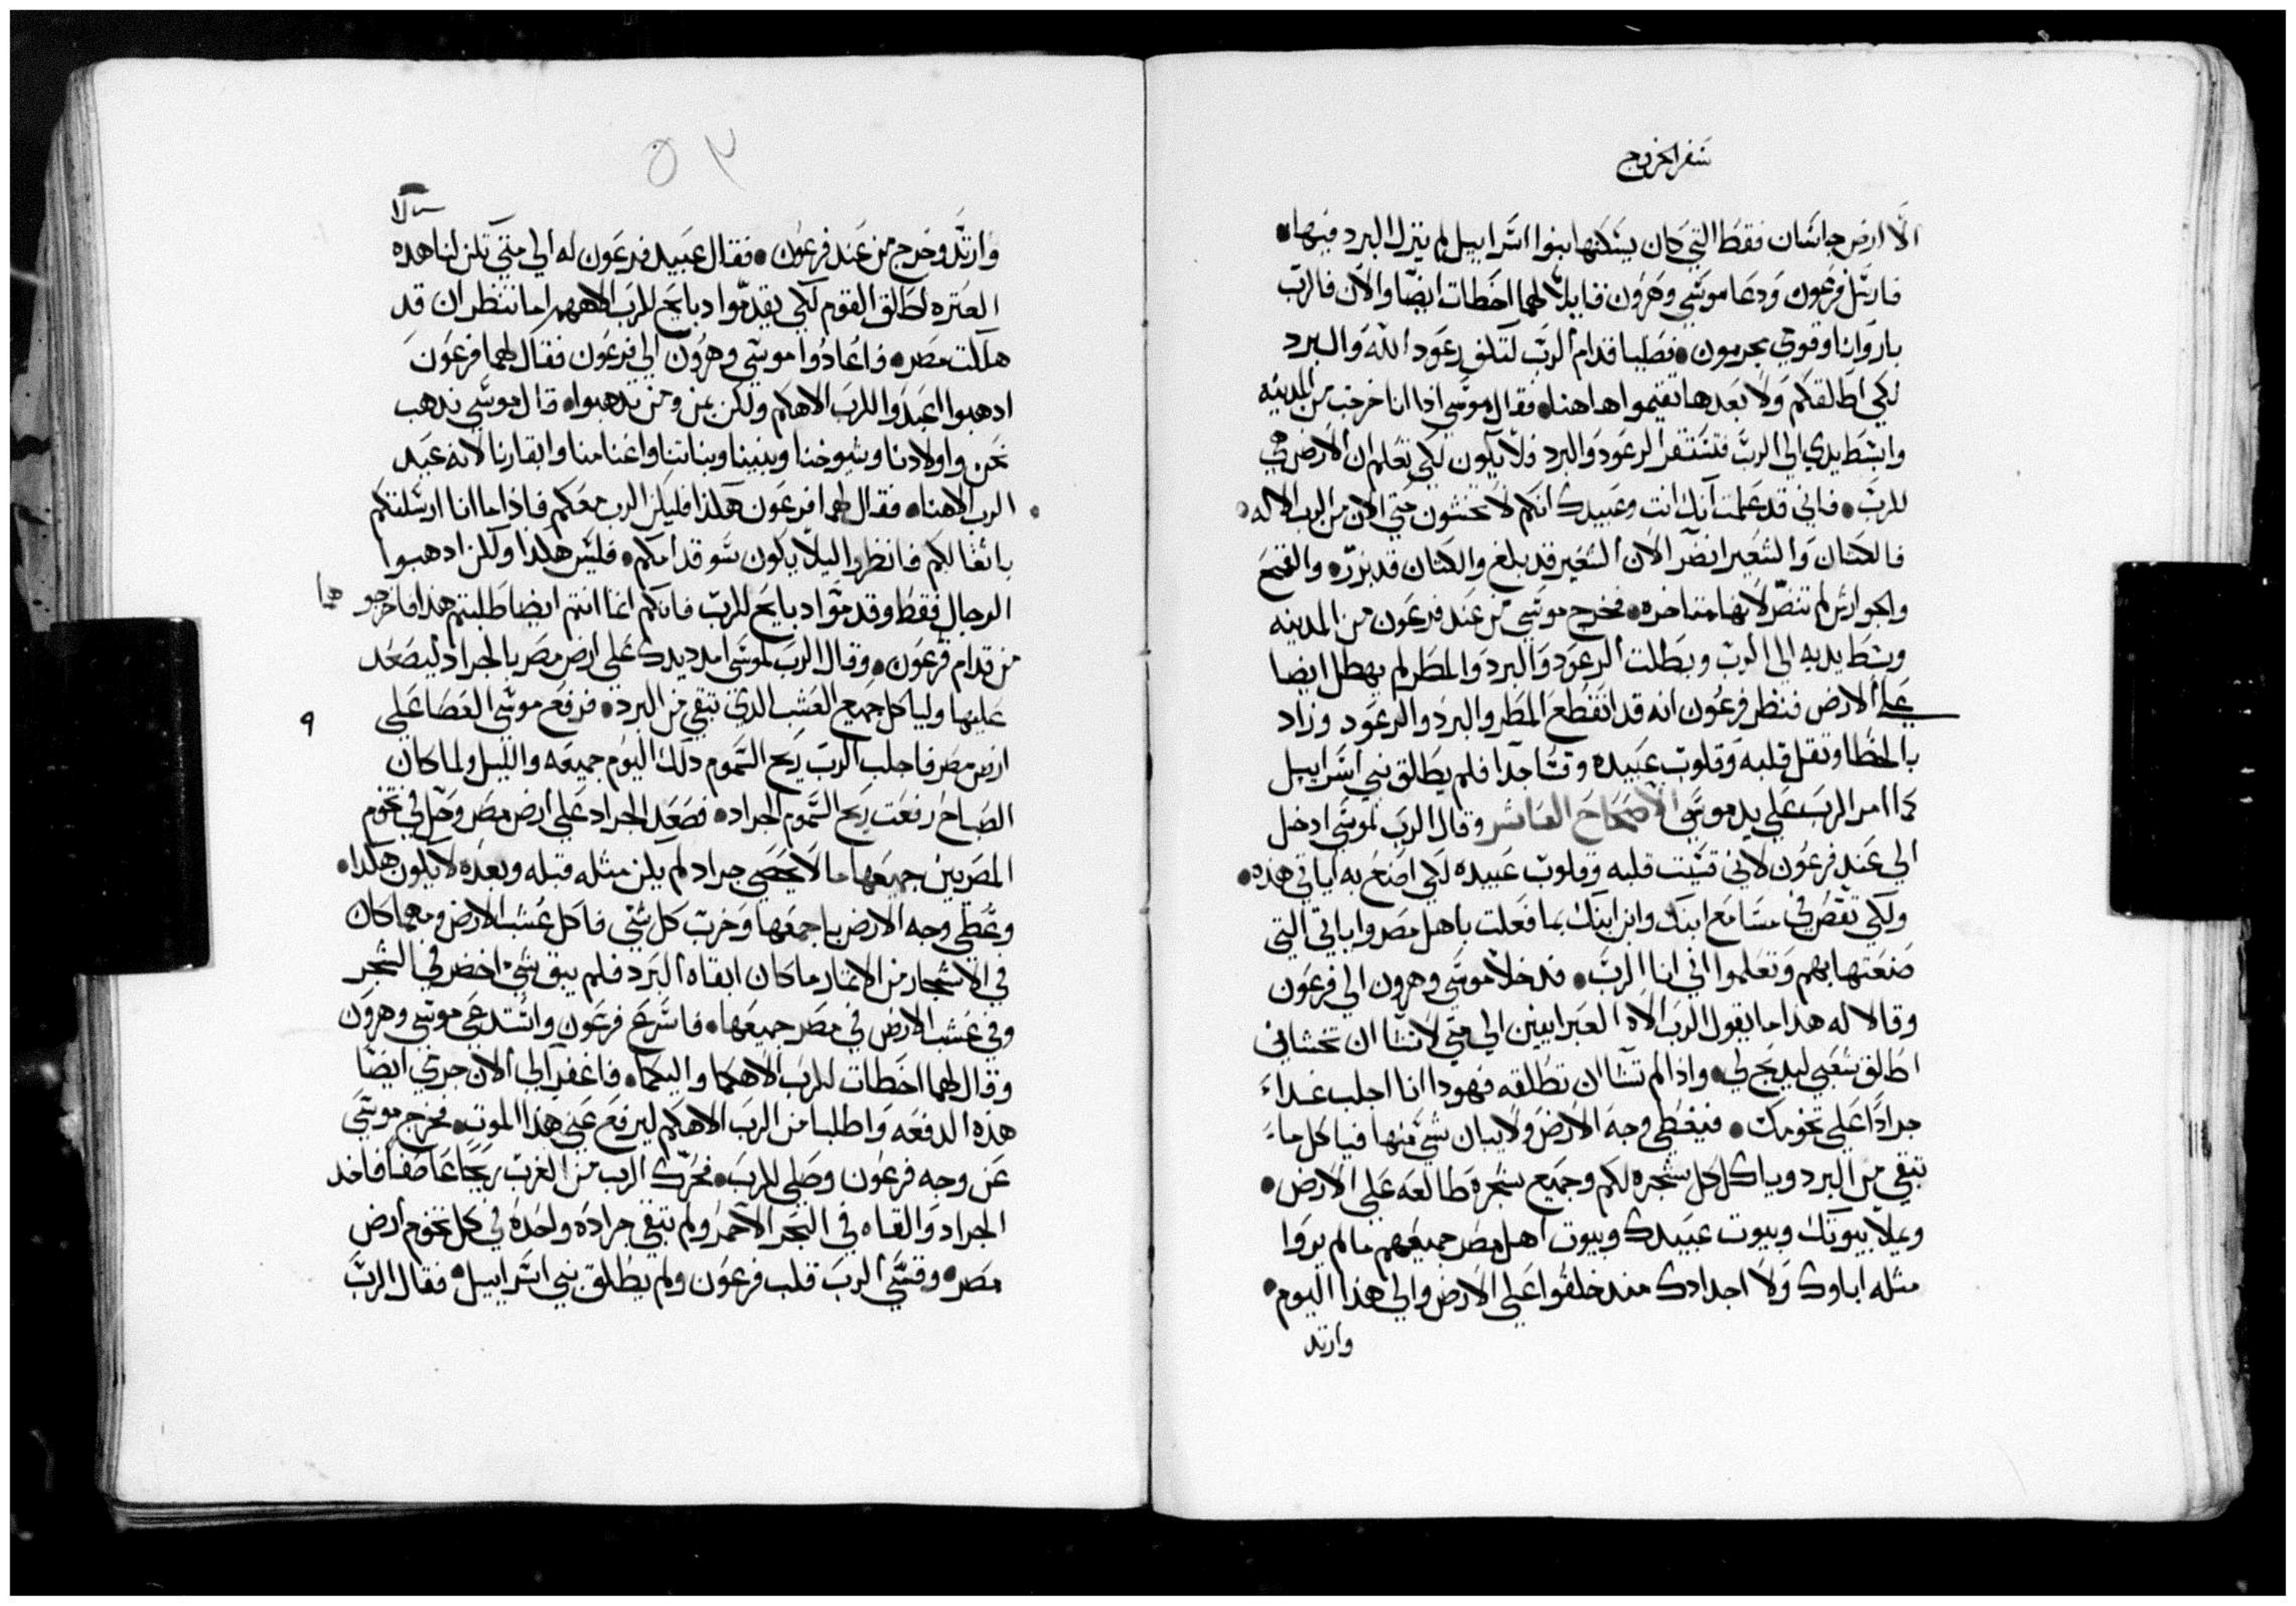 سفر الخروج
الا ارض جاسان فقط التي كان يسكنها بنوا اسراييل لم ينزل البرد فيها
فارسل فرعون ودعا موسى وهرون قايلا لهما اخطات ايضا والان فالرب
بار وانا وقومي مجرمون فصليا قدام الرب لتكف رعود الله والبرد
لكي اطالقكم ولا بعدها تقيموا هاهنا فقال موسى اذا انا خرجت من المدينه
وابسط يدي الى الرب فتستقر الرعود والبرد فلا يكون لكي تعلم ان الارض هي
للرب فاني قد علمت انك انت وعبيدك انكم لا تخشون حتى الان من الرب الاله
فالكتان والشعير انضر الان الشعير قد بلغ والكتان قد بزر والقمح
والجوارش لم تنضر لانها متاخره فخرج موسى من عند فرعون من المدينه
وبسط يديه الى الرب وبطلت الرعود والبرد والمطر لم يهطل ايضا
على الارض فنظر فرعون انه قد انقطع المطر والبرد والرعود وزاد
بالخطا وثقل قلبه وقلوب عبيده وقسا جدا فلم يطالق بني اسراييل
كما امر الرب على يد موسى الاصحاح العاشر وقال الرب لموسى ادخل
الي عند فرعون لاني قسيت قلبه وقلوب عبيده لكي اصنع به اياتي هذه
ولكي تقص في مسامع ابنك وابن ابنك بما فعلت باهل مصر واياتي التي
صنعتها بهم وتعلموا اني انا الرب فدخلا موسى وهرون الي فرعون
وقالا له هدا ما يقول الرب الاه العبرانيين الي متي لا تشا ان تخشاني
اطالق شعبي ليدبح لي واذا لم تشا ان تطلقه فهودا انا اجلب غداء
جرادا على تخومك فيغطي وجه الارض ولا يبان شي منها فياكل ما
تبقي من البرد وياكل كل شجره لكم وجميع شجرة طالعه على الارض
ويملا بيوتك وبيوت عبيدك وبيوت اهل مصر جميعهم ما لم يروا
مثله اباوك ولا اجدادك مند خلقوا على الارض والي هذا اليوم
وارتد
٥٢
وارتد وخرج من عند فرعون فقال عبيد فرعون له الي متي تكن لنا هده
العتره اطالق القوم لكي يقدموا دبايح للرب الاههم اما تنظر ان قد
هلكت مصر فاعادوا موسى وهرون الي فرعون فقال لهما فرعون
ادهبوا اعبدوا للرب الاهكم ولكن من ومن تدهبوا قال موسى ندهب
نحن واولادنا وشيوخنا وبنينا وبناتنا واغنامنا وابقارنا لانه عيد
الرب الاهنا فقال لهما فرعون هكذا فليكن الرب معكم فاذا ما انا ارسلتكم
باثقالكم فانظروا ليلا يكون سو قدامكم فليس هكدا ولكن ادهبوا
الرجال فقط وقدموا دبايح للرب فانكم انما انتم ايضا طلبتم هدا فاخرجوهما
من قدام فرعون وقال الرب لموسى امدد يدك على ارض مصر بالجراد ليصعد
عليها ولياكل جميع العشب الدي تبقي من البرد فرفع موسى العصا علي
٩
ارض مصر فاجلب الرب ريح السموم دلك اليوم جميعه والليل ولما كان
الصباح رفعت ريح السموم الجراد فصعد الجراد على ارض مصر وحل في تخوم
المصريين جميعها ما لا يحصي جراد لم يكن مثله قبله وبعده لا يكون هكدا
وغطي وجه الارض باجمعها وخرب كل شي فاكل عشب الارض ومهما كان
في الاشجار من الاثمار ما كان ابقاه البرد فلم يبق شي اخضر في الشجر
وفي عشب الارض في مصر جميعها فاسرع فرعون واستدعي موسى وهرون
وقال لهما اخطات للرب الاهكما واليكما فاغفر الي الان جرمي ايضا
هذه الدفعه واطلبا من الرب الاهكم ليرفع عني هذا الموت فخرج موسى
عن وجه فرعون وصلي للرب فحرك الرب من الغرب ريحا عاصفا فاخد
الجراد والقاه في البحر الاحمر ولم تبقي جراده واحده في كل تخوم ارض
مصر وقسي الرب قلب فرعون ولم يطلق بني اسراييل فقال الرب